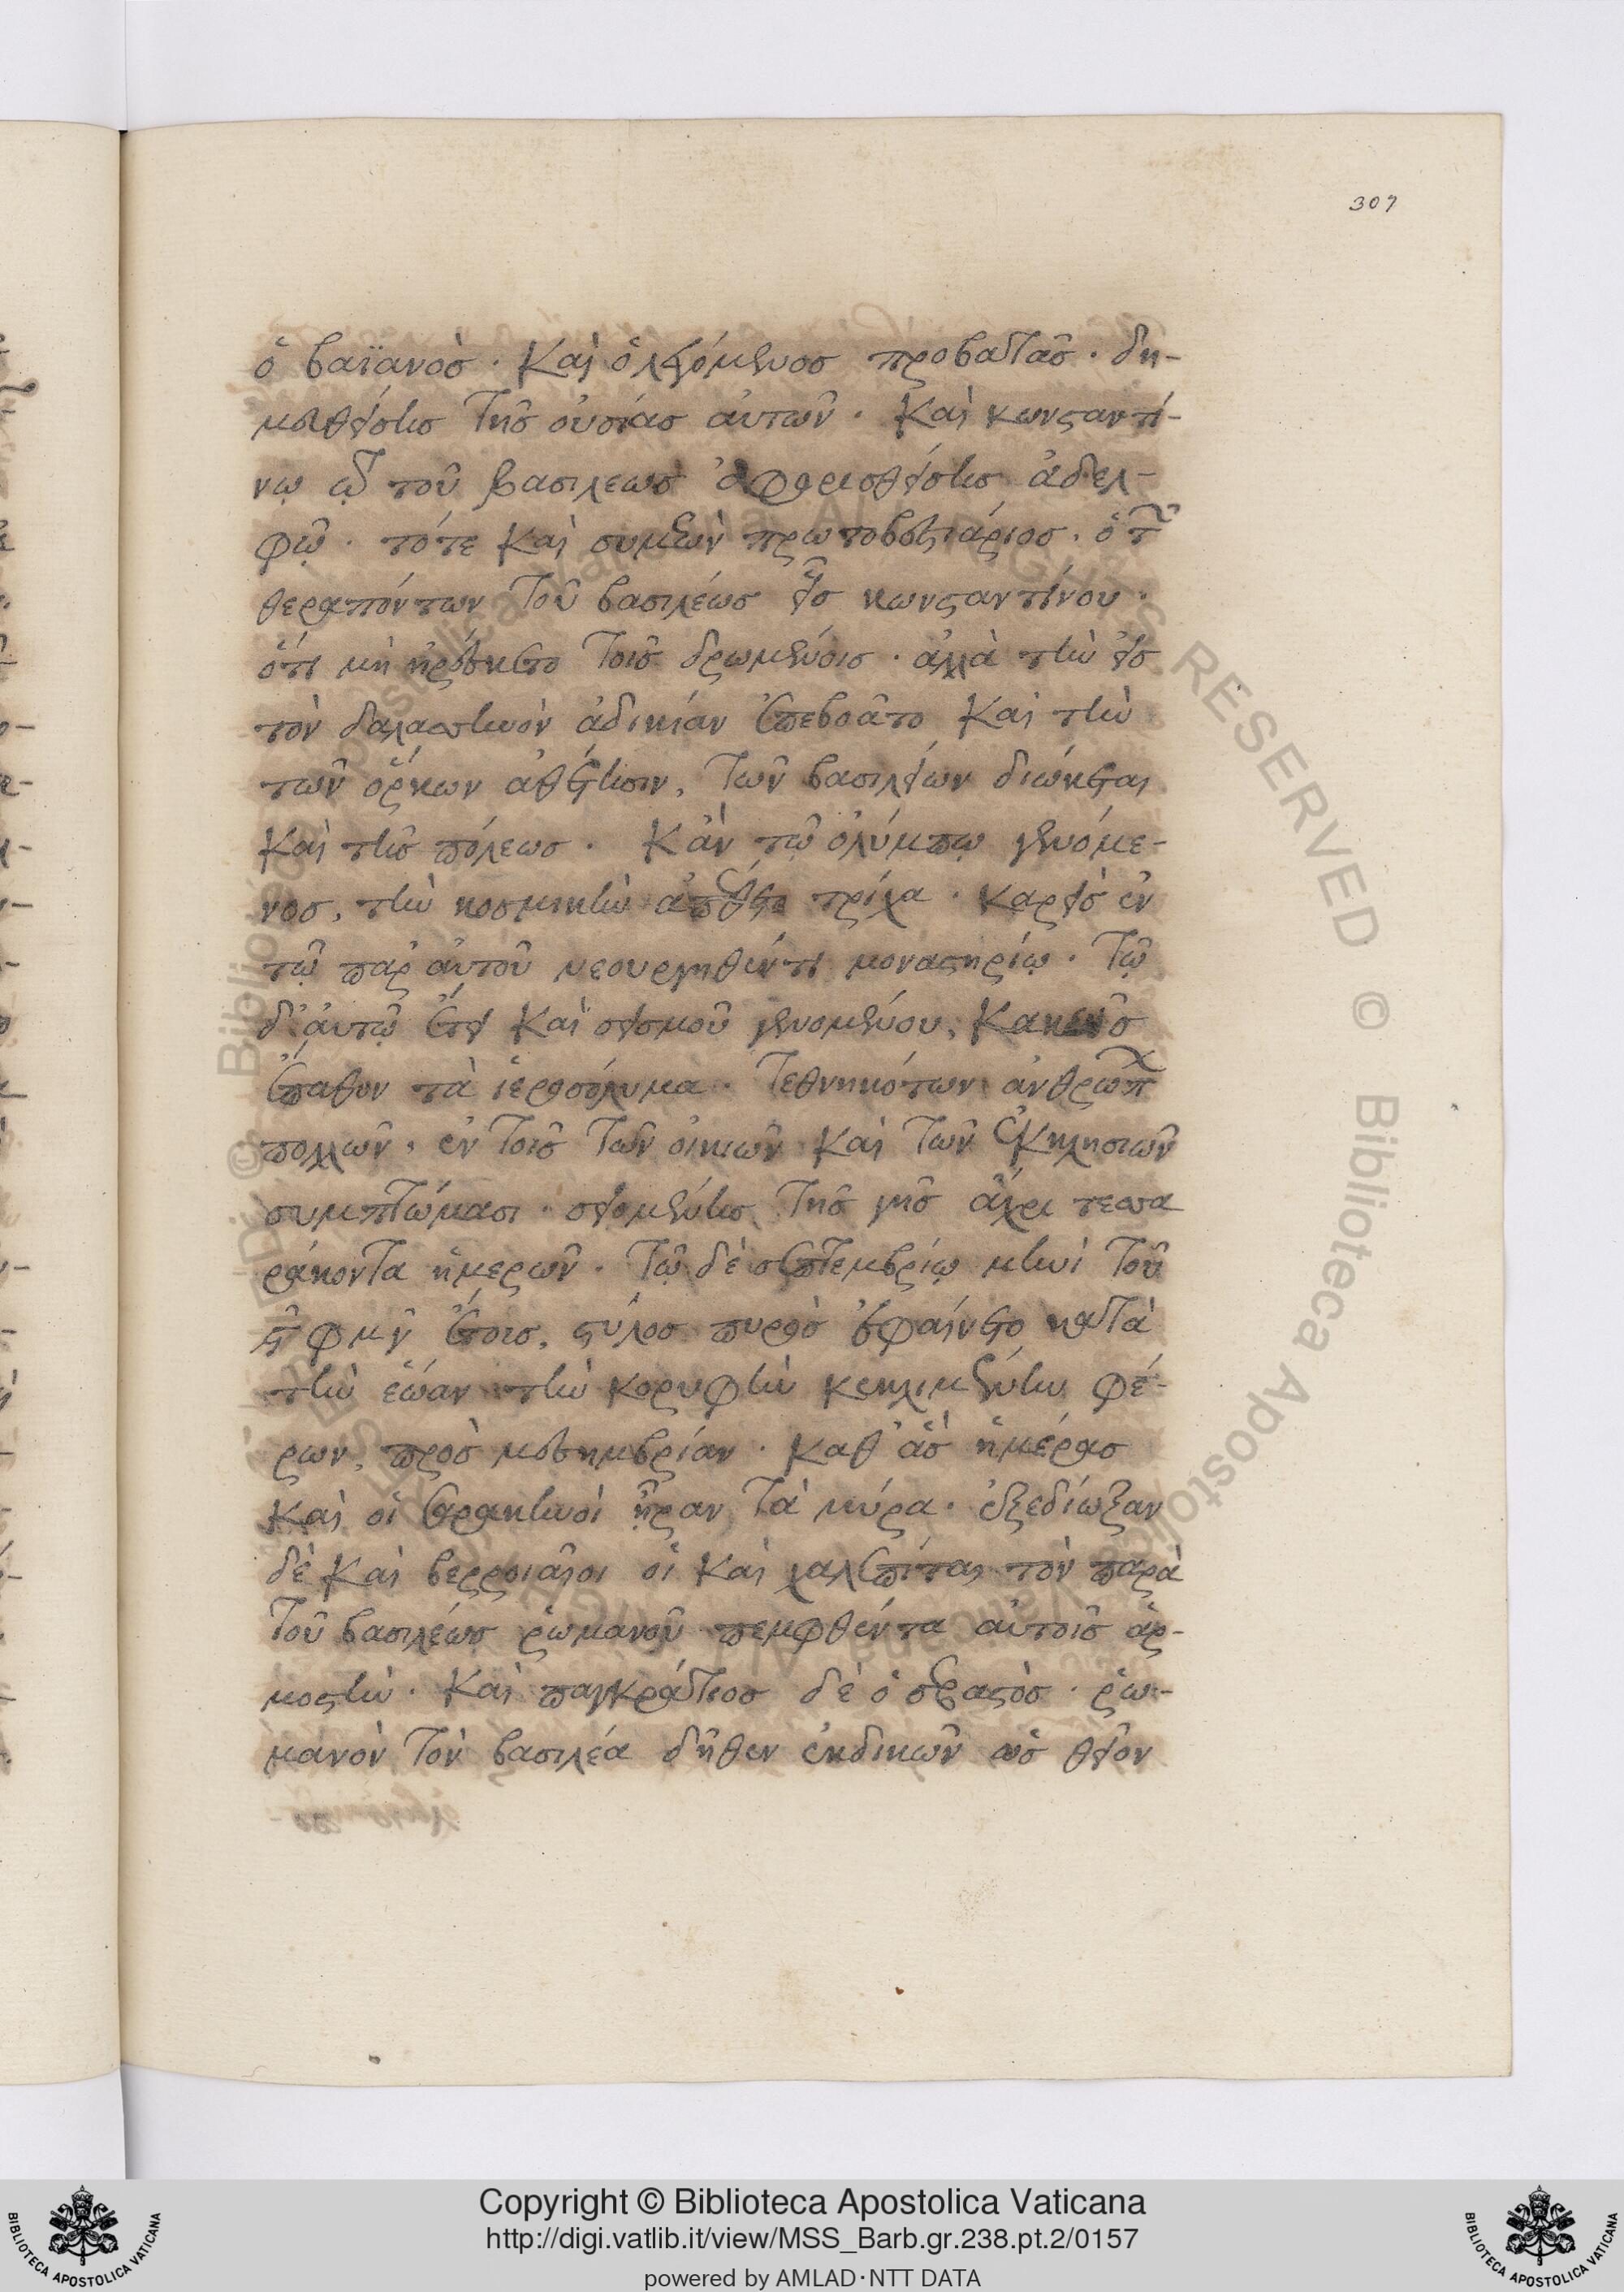 307
ὁ βαϊανὸσ · καὶ ὁ λεγόμενοσ προβατᾶσ · δη-
μευθείσησ τῆσ οὐσίασ αὐτῶν · καὶ κωνσταντί-
νω τῷ τοῦ βασιλεωσ ἀφορισθείσησ ἀδελ-
φῷ · τότε καὶ συμεὼν πρωτοβεστιάριοσ, ὁ τῶν
θεραπόντων τοῦ βασιλέωσ εἷσ κωνσταντίνου ·
ὅτι μὴ ἠρέσκετο τοῖσ δρωμένοισ · ἀλλὰ τὴν εἰσ
τὸν δαλασσηνὸν ἀδικίαν ἐπεβοᾶτο καὶ τὴν
τῶν ὅρκων ἀθέτησιν, τῶν βασιλείων διώκεται
καὶ τῆσ πόλεωσ · κἀν τῷ ὀλύμπῳ γενόμε-
νοσ, τὴν κοσμικὴν ἀπέθετο τρίχα · καρεὶσ ἐν
τῷ παρ αὐτοῦ νεουργηθέντι μοναστηρίῳ · τῷ
δ' αὐτῷ ἔτει καὶ σεισμοῦ γενομένου, κακῶσ
ἔπαθον τὰ ἱεροσόλυμα · τεθνηκότων ἀνθρώπων
πολλῶν, ἐν τοῖσ τῶν οἰκιῶν καὶ τῶν ἐκκλησιῶν
συμπτώμασι · σειομένησ τῆσ γῆσ ἄχρι τεσσα
ράκοντα ἡμερῶν · τῷ δὲ σεπτεμβρίῳ μηνὶ τοῦ
ϛ φ μ γ ἔτοισ, στύλοσ πυρὸσ ἐφαίνετο κατὰ
τὴν ἑώαν τὴν κορυφὴν κεκλιμένην φέ-
ρων, πρὸσ μεσημβρίαν · καθ' ἃσ ἡμέρασ
καὶ οἱ σαρακηνοὶ ᾗραν τὰ μύρα · ἐξεδίωξαν
δὲ καὶ βερροιαῖοι οἱ καὶ χαλεπῖται τὸν παρὰ
τοῦ βασιλέωσ ῥωμανοῦ πεμφθέντα αὐτοῖσ ἁρ-
μοστήν · καὶ παγκράτιοσ δὲ ὁ σεβαστὸσ · ῥω-
μανὸν τὸν βασιλέα δῆθεν ἐκδικῶν ὡσ θεῖον
Copyright © Biblioteca Apostolica Vaticana
http://digi.vatlib.it/view/MSS_Barb.gr.238.pt.2/0157
powered by AMLAD·NTT DATA